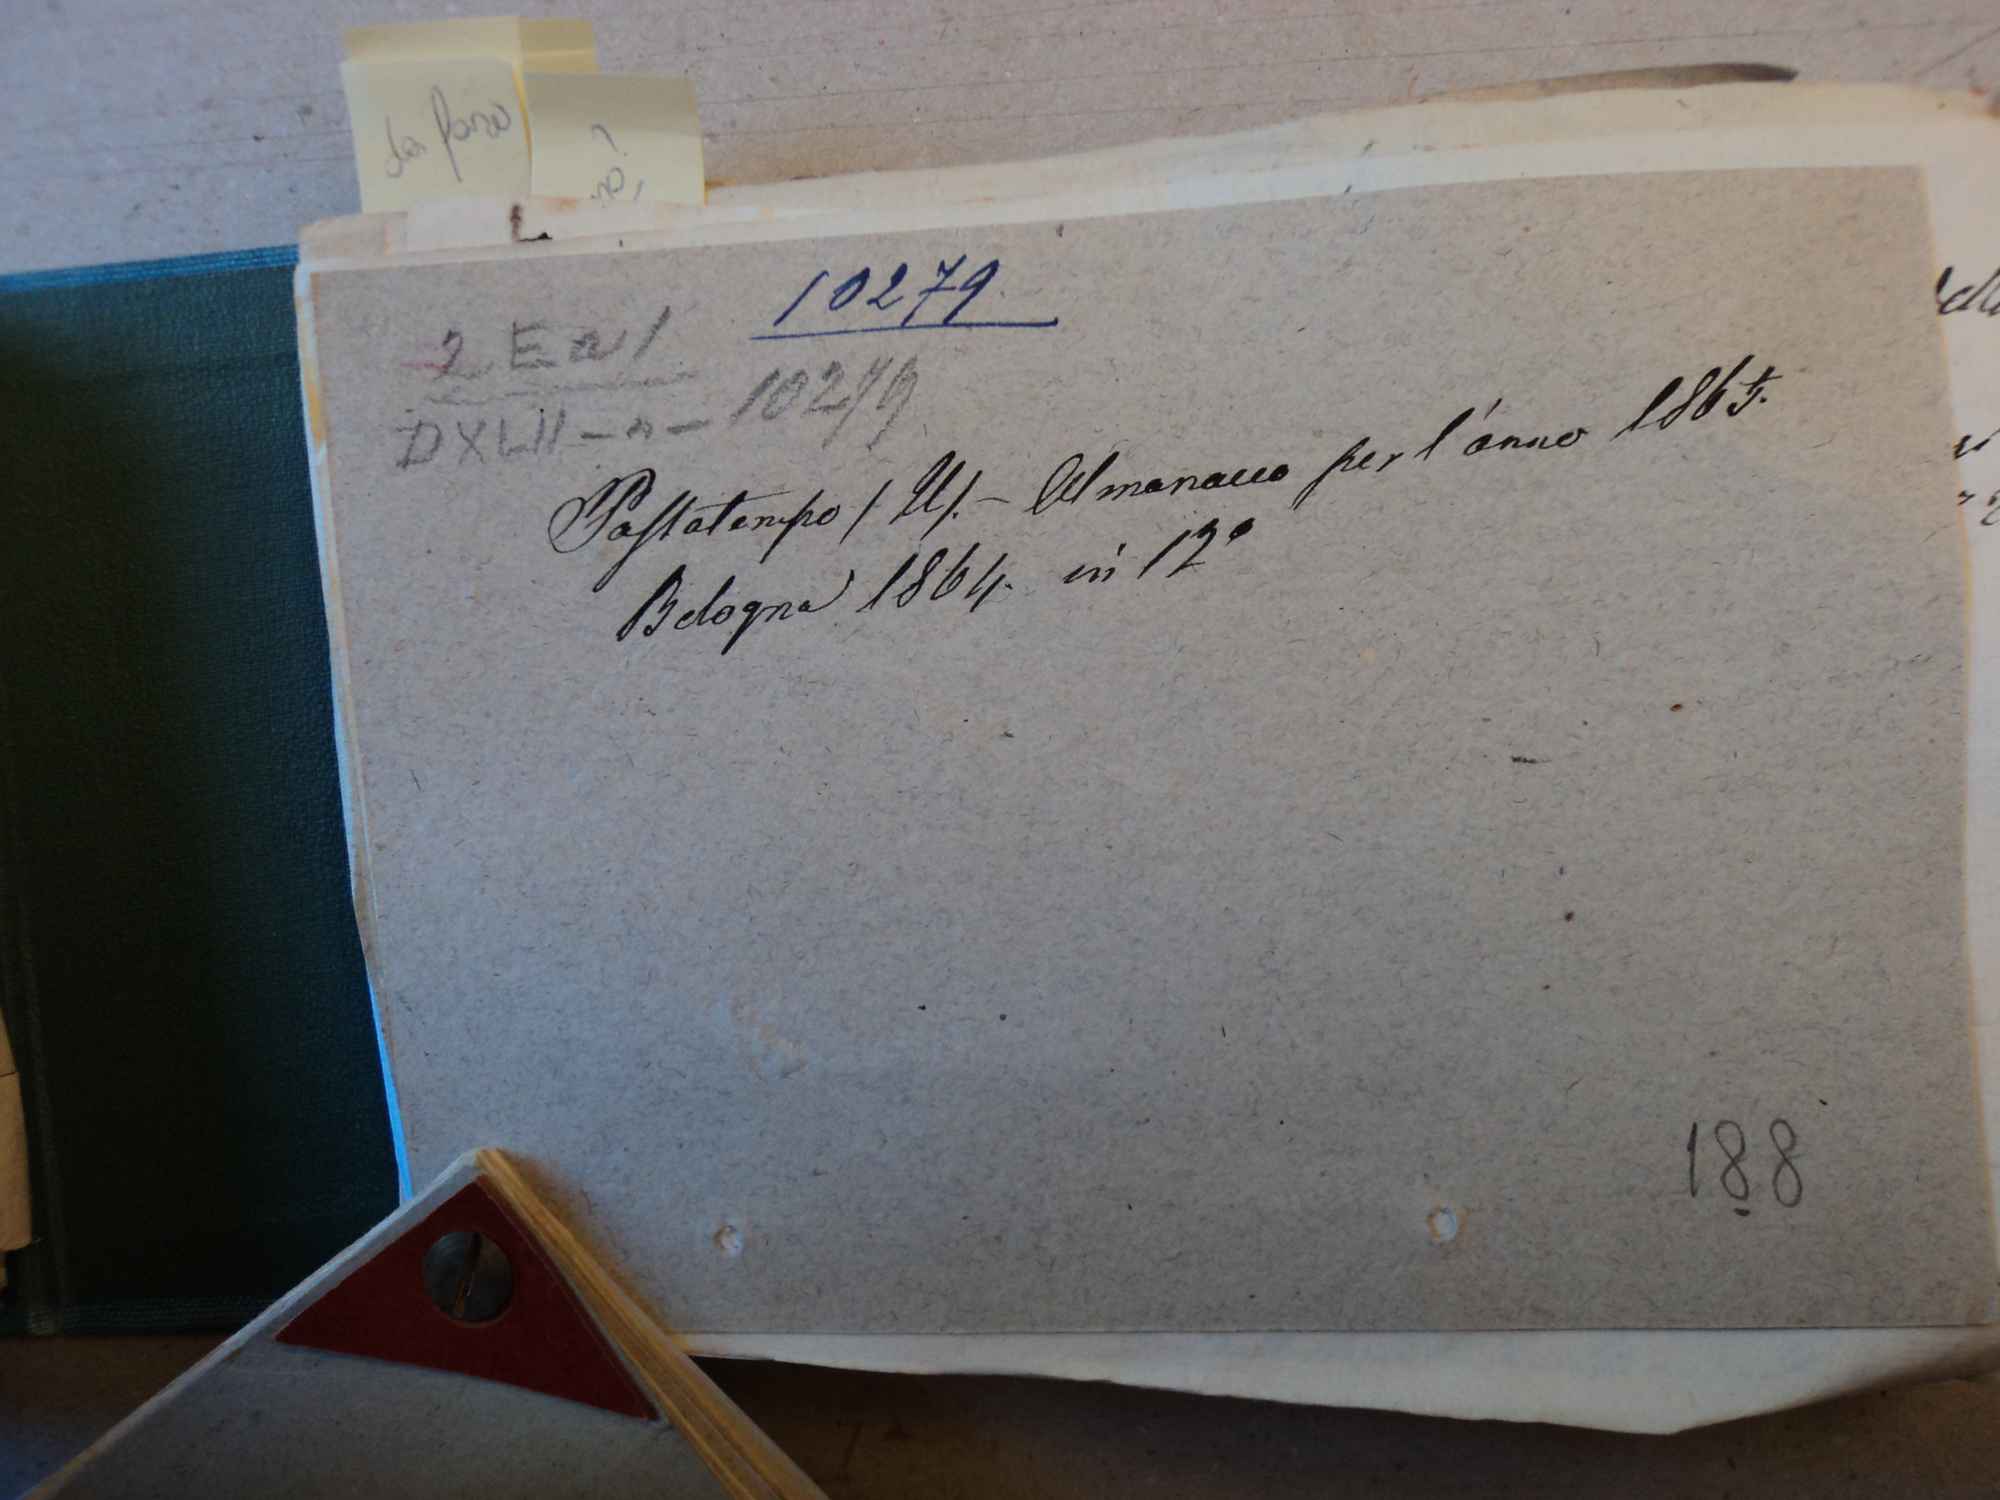 da fare
10279
2 E a 1
DXLII - n - 10279
Passatempo (Il). - Almanacco per l'anno 1865.
Bologna 1864. in 12°
188